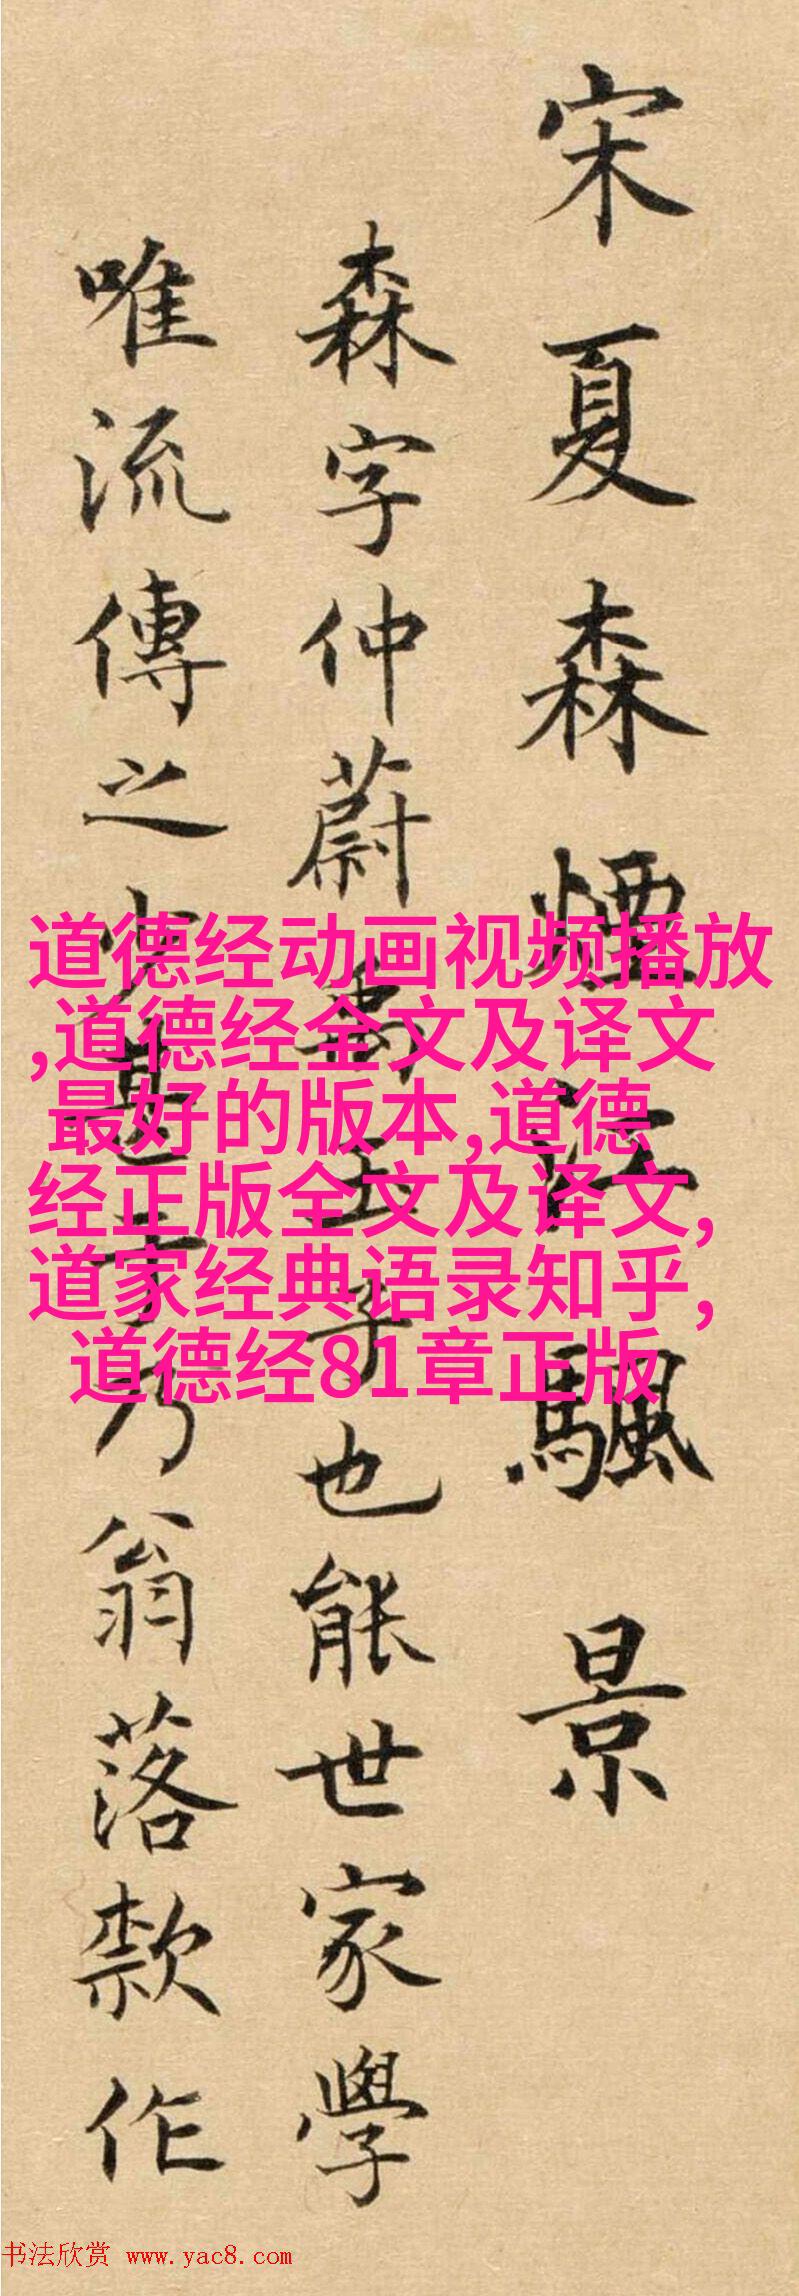 宋夏森煙江颿景
森字仲蔚禹玉子也能世家學
唯流傳之少甚于乃翁落款作
道德经动画视频播放
,道德经全文及译文
最好的版本,道德
经正版全文及译文,
道家经典语录知乎,
道德经81章正版
书法欣赏 www.yac8.com